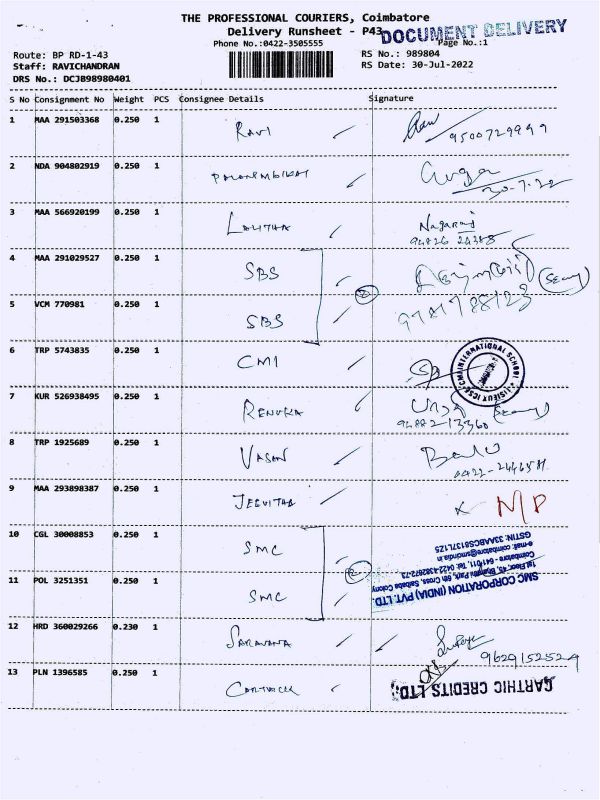 THE PROFESSIONAL COURIERS, Coimbatore
Delivery Runsheet - P43
DOCUMENT DELIVERY
Phone No.:0422-3505555
Page No.:1
Route: BP RD-1-43
RS No.: 989804
Staff: RAVICHANDRAN
RS Date: 30-Jul-2022
DRS No.: DCJB98980401
S No Consignment No Weight PCS Consignee Details Signature
1 MAA 291503368 0.250 1 RAVI
9500729999
2 NDA 904802919 0.250 1
30-7-22
3 MAA 566920199 0.250 1 LALITHA Nagaraj
4 MAA 291029527 0.250 1 SBS
5 VCM 770981 0.250 1 SBS
2
9787788123
6 TRP 5743835 0.250 1 CMI
INTERNATIONAL SCHOOL
LISIEUX ICSE
7 KUR 526938495 0.250 1 RENUKA
94882-13360
8 TRP 1925689 0.250 1 VASAN Balu
9 MAA 293898387 0.250 1 JEEVITHA
10 CGL 30008853 0.250 1 SMC
11 POL 3251351 0.250 1 SMC
2
SMC CORPORATION (INDIA) PVT. LTD.
1st Floor, 45, Bharathi Park, 6th Cross, Saibaba Colony
Coimbatore - 641 011. Tel: 0422-4382872-73
e-mail: coimbatore@smcindia.in
GSTIN: 33AABCS8137L1Z5
12 HRD 360029266 0.230 1 SARAVANA
9629152524
13 PLN 1396585 0.250 1
CARTHIC CREDITS LTD.,